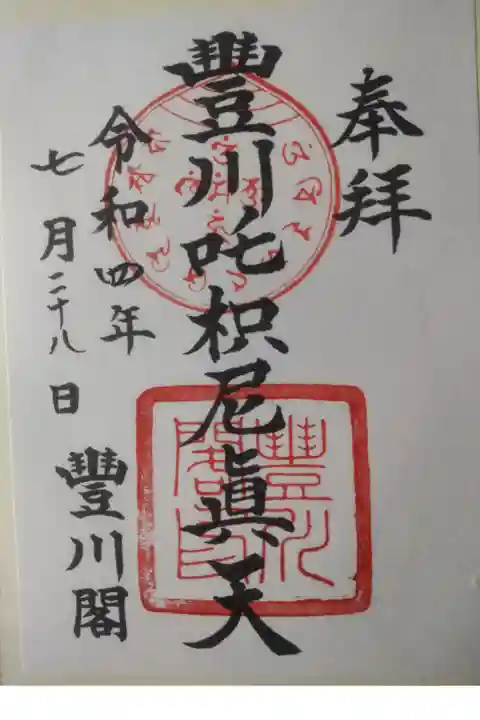 奉拜
豐川吒枳尼眞天
令和四年
七月二十八日
豐川閣